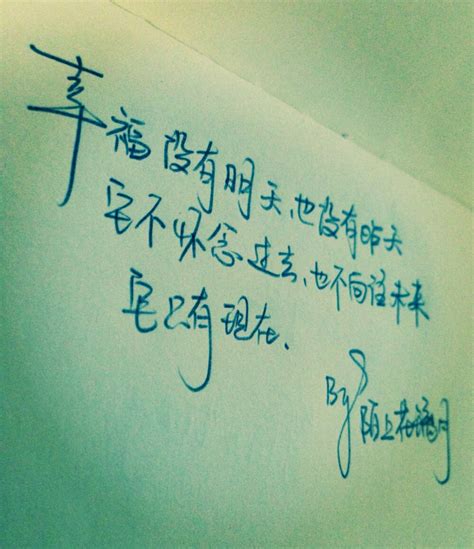 幸福没有明天、也没有昨天
它不怀念过去、也不向往未来
它只有现在、
By 陌上花